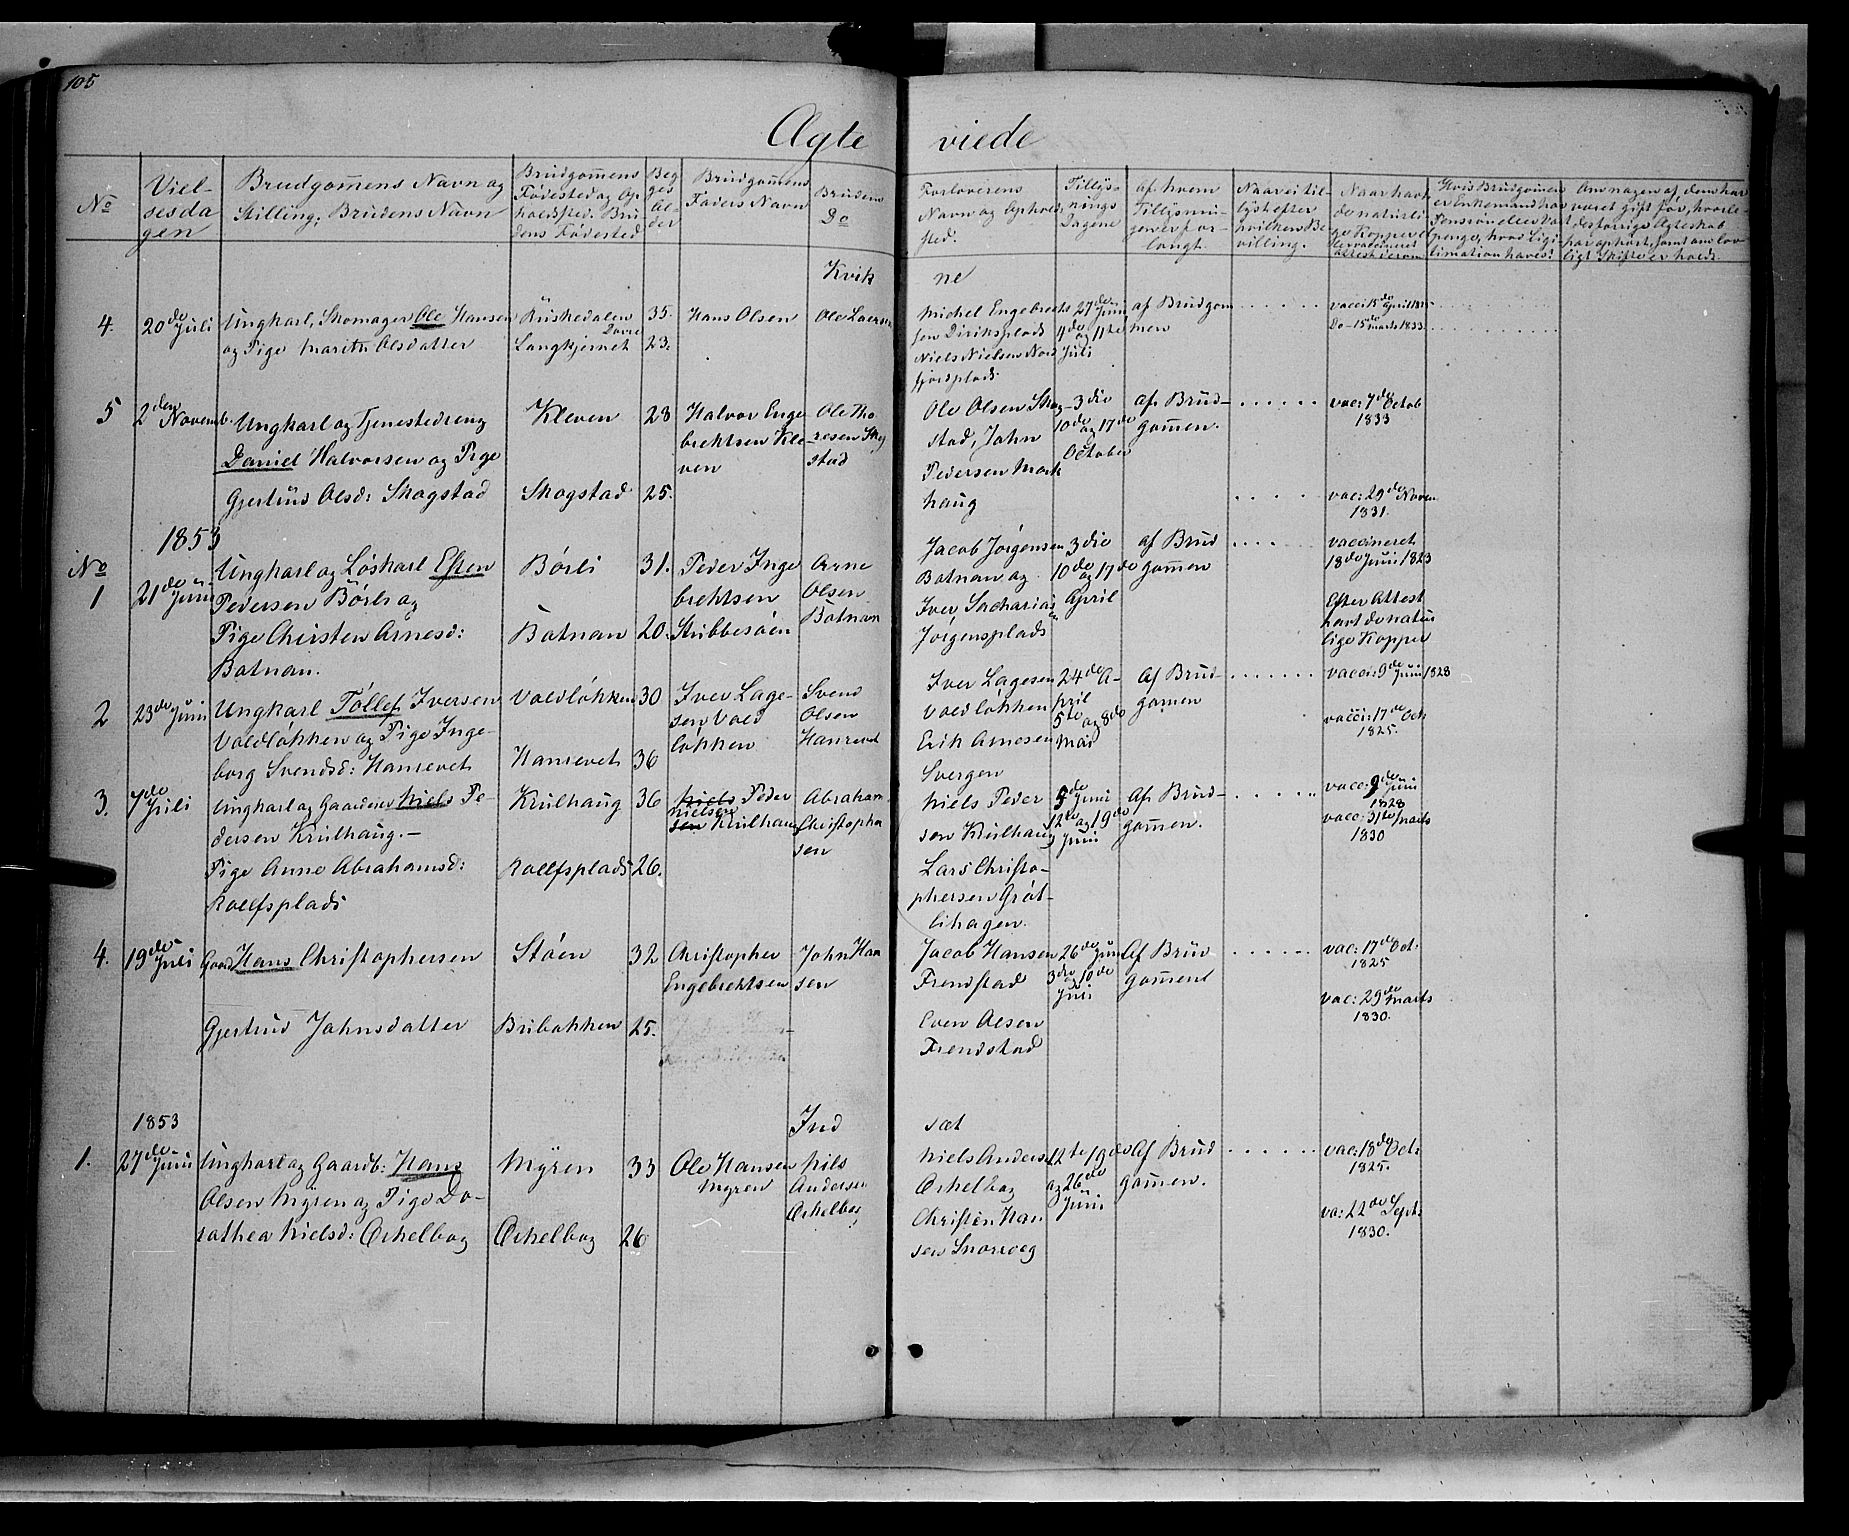 105
Ægte viede
No
Viel-
sesda
gen
Brudgom̅ens Navn og
Stilling; Brudens Navn
Brudgom̅ens
Fødested og Op
holdsted. Bru
dens Fødested
Beg
ges
Al-
der
Brudgom̅ens
Faders Navn
Brudens
Do
Forloverens
Navn og Opholds
sted.
Tillys-
nings
Dagene
af hvem
Tillysnin
gen er for-
langt.
Naar ei til
lyst efter
hvilken Be
villing.
Naar havt
de naturli
ge Kopper e
ller vaccineret
Attest derom
Hvis Brudgom̅en
er Enkemand har
Pension eller Vart
penge, hvad Legi
timation haves?
Om nogen af dem har
været gift før, hvorle-
des forrige Ægteskab
har ophørt, samt om lov
ligt Skifte er holdt
Kvik ne
4. 20de Juli
Ungkarl, Skomager Ole Hansen
og Pige Marith Olsdatter
Kuskedalen
Dovre
Langkjernet
35.
23.
Hans Olsen
Ole Larsen
Michel Engebrecht
sen Diriksplads
Niels Nielsen Nord
fjordplads
27de Juni
4de og 11te
Juli
af Brudgom
men
vacci: 15de April 1825
Do - 15de Marts 1833
5 2den Novemb.
Ungkarl og Tjenestedreng
Daniel Halvorsen og Pige
Gjertrud Olsd: Skogstad
Kleven
Skogstad
28
25.
Halvor Enge
brehtsen Kle
ven
Ole Tho
resen Skog
stad
Ole Olsen Skog
stad, John
Pedersen Mork
haug
3die
10de og 17de
October
af Brud-
gom̅en.
vac: 7de Octob
1833
vac: 29de Novem
1831.
1853
No
1 21de Juni
Ungkarl og Løskarl Esten
Pedersen Børli og
Pige Chirsten Arnesd:
Batnan.
Børli
Batnan
31.
20.
Peder Inge
brehtsen
Stubbesøen
Arne
Olsen
Batnan
Jacob Jørgensen
Batnan og
Iver Sacharias
Jørgensplads
3die
10de og 17de
April
af Brud
gom̅en
vaccineret
18de Juni 1823
Efter Attest
havt de natur
lige Kopper
2 23de Juni
Ungkarl Tollef Iversen
Voldløkken og Pige Inge-
borg Svendsd: Hansevet
Voldløkken
Hansevet
30
36
Iver Lage-
sen Vold
løkken
Svend
Olsen
Hansevet
Iver Lagesen
Voldløkken
Erik Arnesen
Svergen
24de A-
pril
5te og 8de
Mai
Af Brud-
gom̅en
vacci: 9de Juni 1828
vacci: 17de Oct
1825.
3. 7de Juli
Ungkarl og Gaardeier Niels Pe-
dersen Krulhaug.-
Pige Anne Abrahamsd:
Rolfsplads
Krulhaug
Rolfsplads
36
26.
Niels Peder
Nielsen
sen Krulhaug
Abraham
Christopher
sen
Niels Peder
sen Krulhaug
Lars Christo-
phersen Grøt-
lihagen.
5de Juni
12te og 19de
Juni
Af Brud-
gom̅en.
vacc: 9de Juni
1828
vacc: 31te Marts
1830
4. 19de Juli
Gaardb Hans Christophersen
Gjertrud Johnsdatter
Støen
Bribakken
32
25.
Christopher
Engebrehtsen
John Han
sen
Jacob Hansen
Frendstad
Even Olsen
Frendstad
26de Juni
3die og 10de
Juli
Af Brud
gom̅ene
vac: 17de Oct:
1825
vac: 29de Marts
1830.
1853
Ind set
1. 27de Juni
Ungkarl og Gaardb: Hans
Olsen Myren og Pige Do-
rathea Nielsd: Ørkelbog
Myren
Ørkelbog
33
26
Ole Hansen
Myren
Nils
Andersen
Ørkelbog
Niels Anders
Ørkelbog
Christen Han
sen Snorreeg
12te 19de
og 26de
Juni
Af Brud
gom̅en.
vac: 18de Oct:
1825.
va: 22de Sept:
1830.